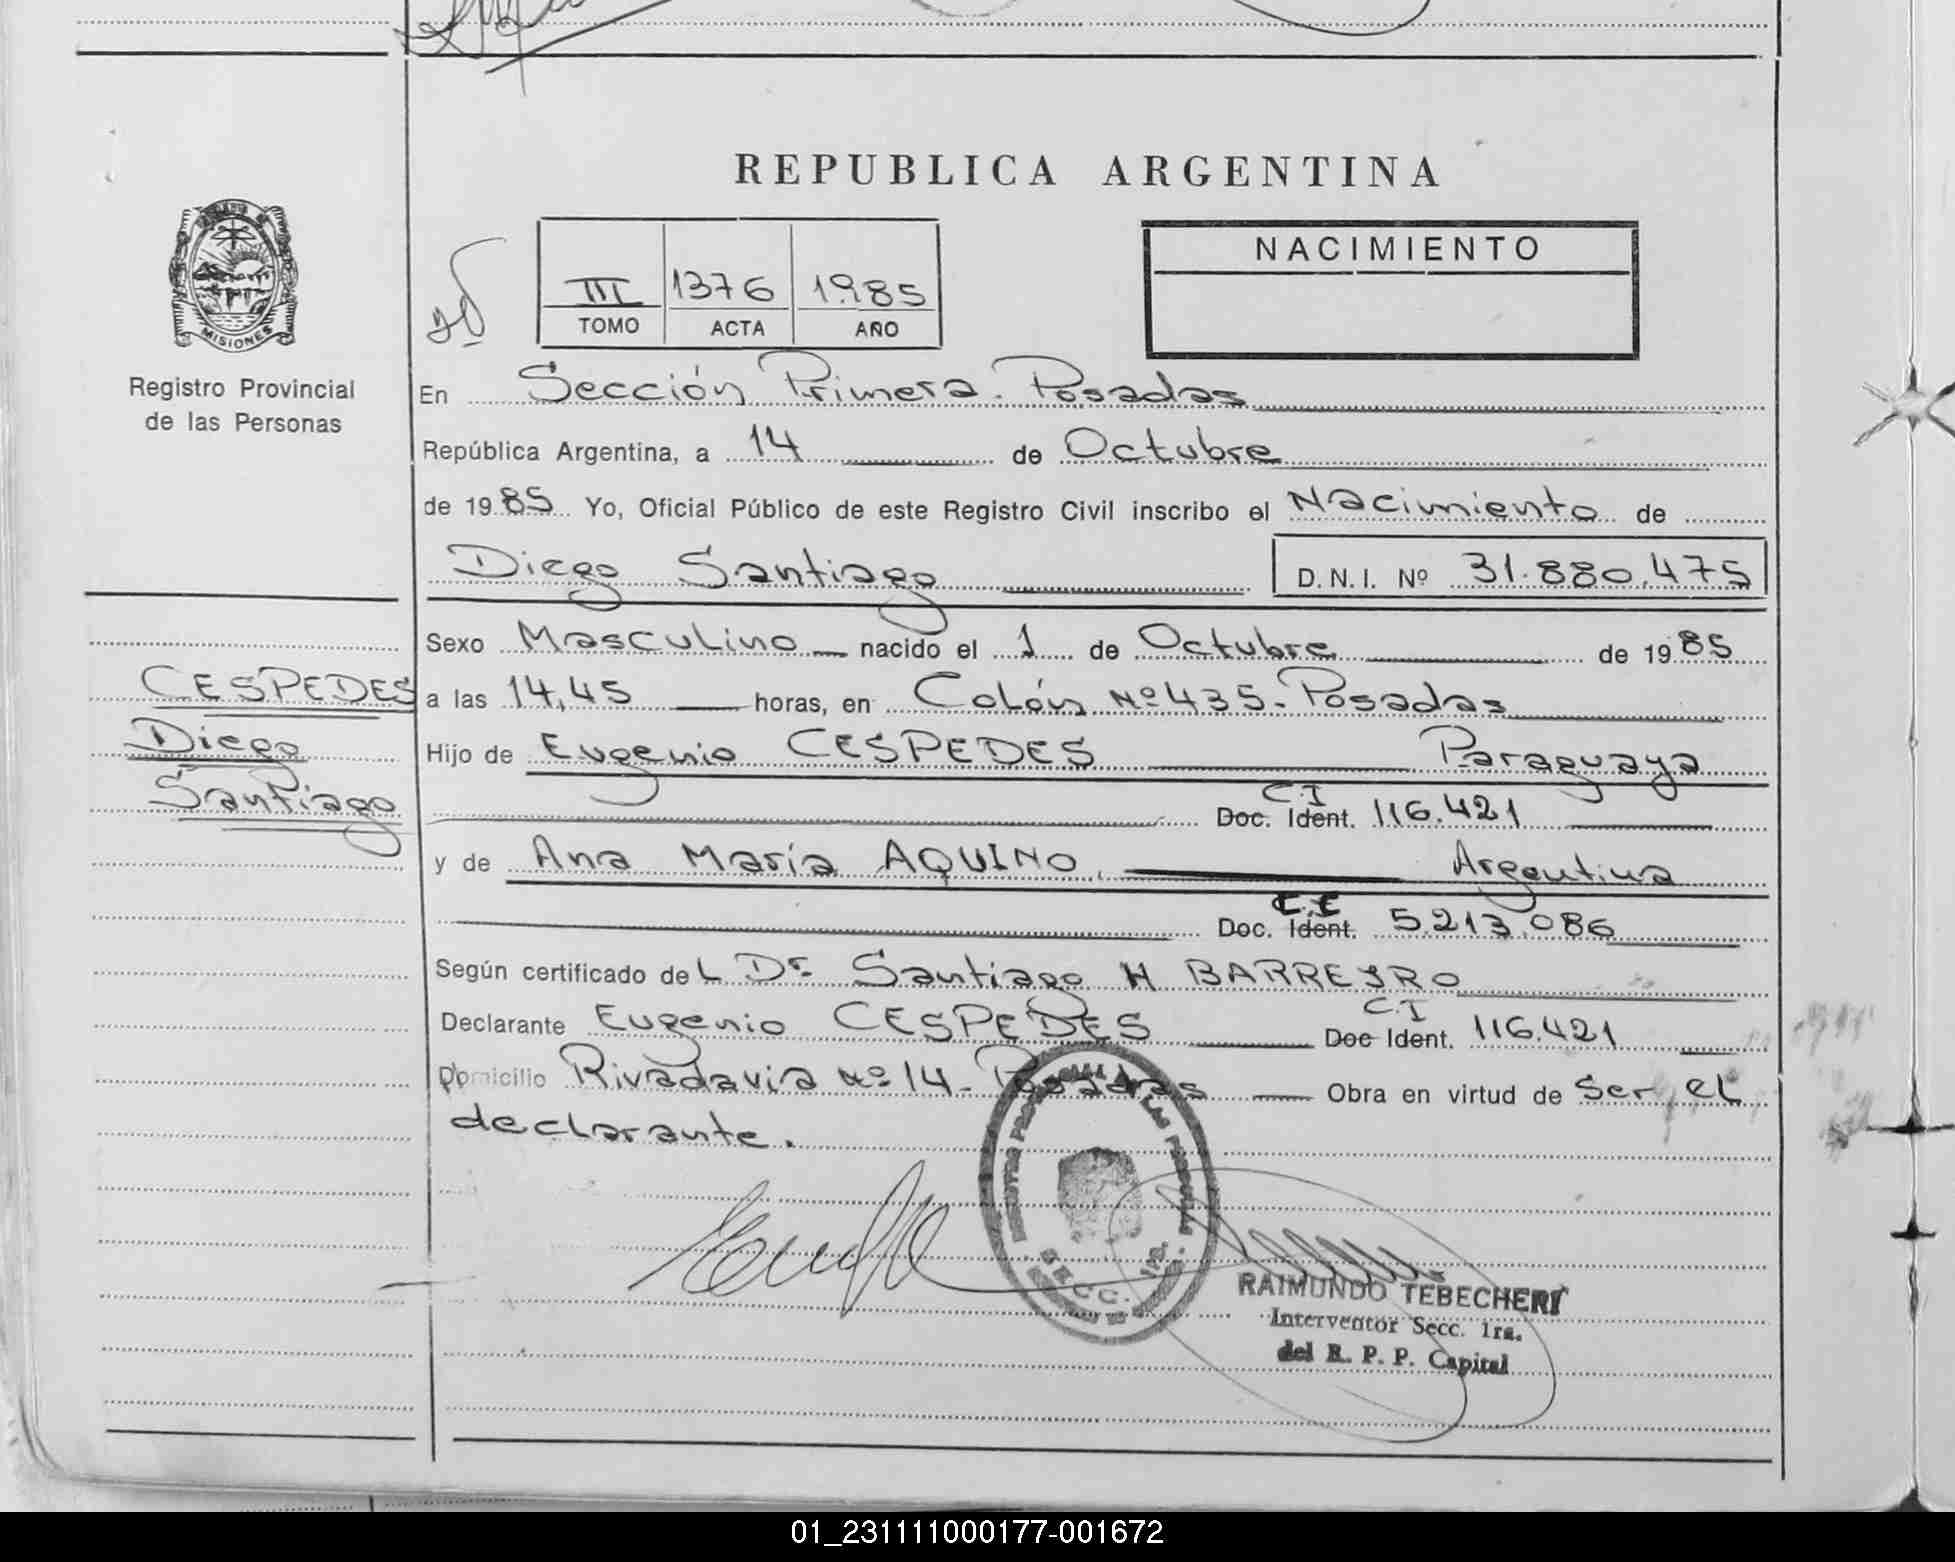 REPUBLICA ARGENTINA
MISIONES
Registro Provincial
de las Personas
III 1376 1985
TOMO ACTA AÑO
NACIMIENTO
En Sección Primera. Posadas
República Argentina, a 14 de Octubre
de 1985 Yo, Oficial Público de este Registro Civil inscribo el Nacimiento de
Diego Santiago D.N.I. Nº 31.880.475
Sexo Masculino nacido el 1 de Octubre de 1985
CESPEDES
Diego
Santiago
a las 14,45 horas, en Colón Nº 435. Posadas
Hijo de Eugenio CESPEDES Paraguaya
C.I
Doc. Ident. 116.421
y de Ana María AQUINO, Argentina
Doc. Ident. 5.213.086
Según certificado del Dr Santiago H BARREYRO
C.I
Declarante Eugenio CESPEDES Doc Ident. 116.421
Domicilio Rivadavia Nº 14 - Posadas Obra en virtud de Ser el
declarante.
SECC. 1ra.
RAIMUNDO TEBECHERI
Interventor Secc. 1ra.
del R. P. P. Capital
01_231111000177-001672